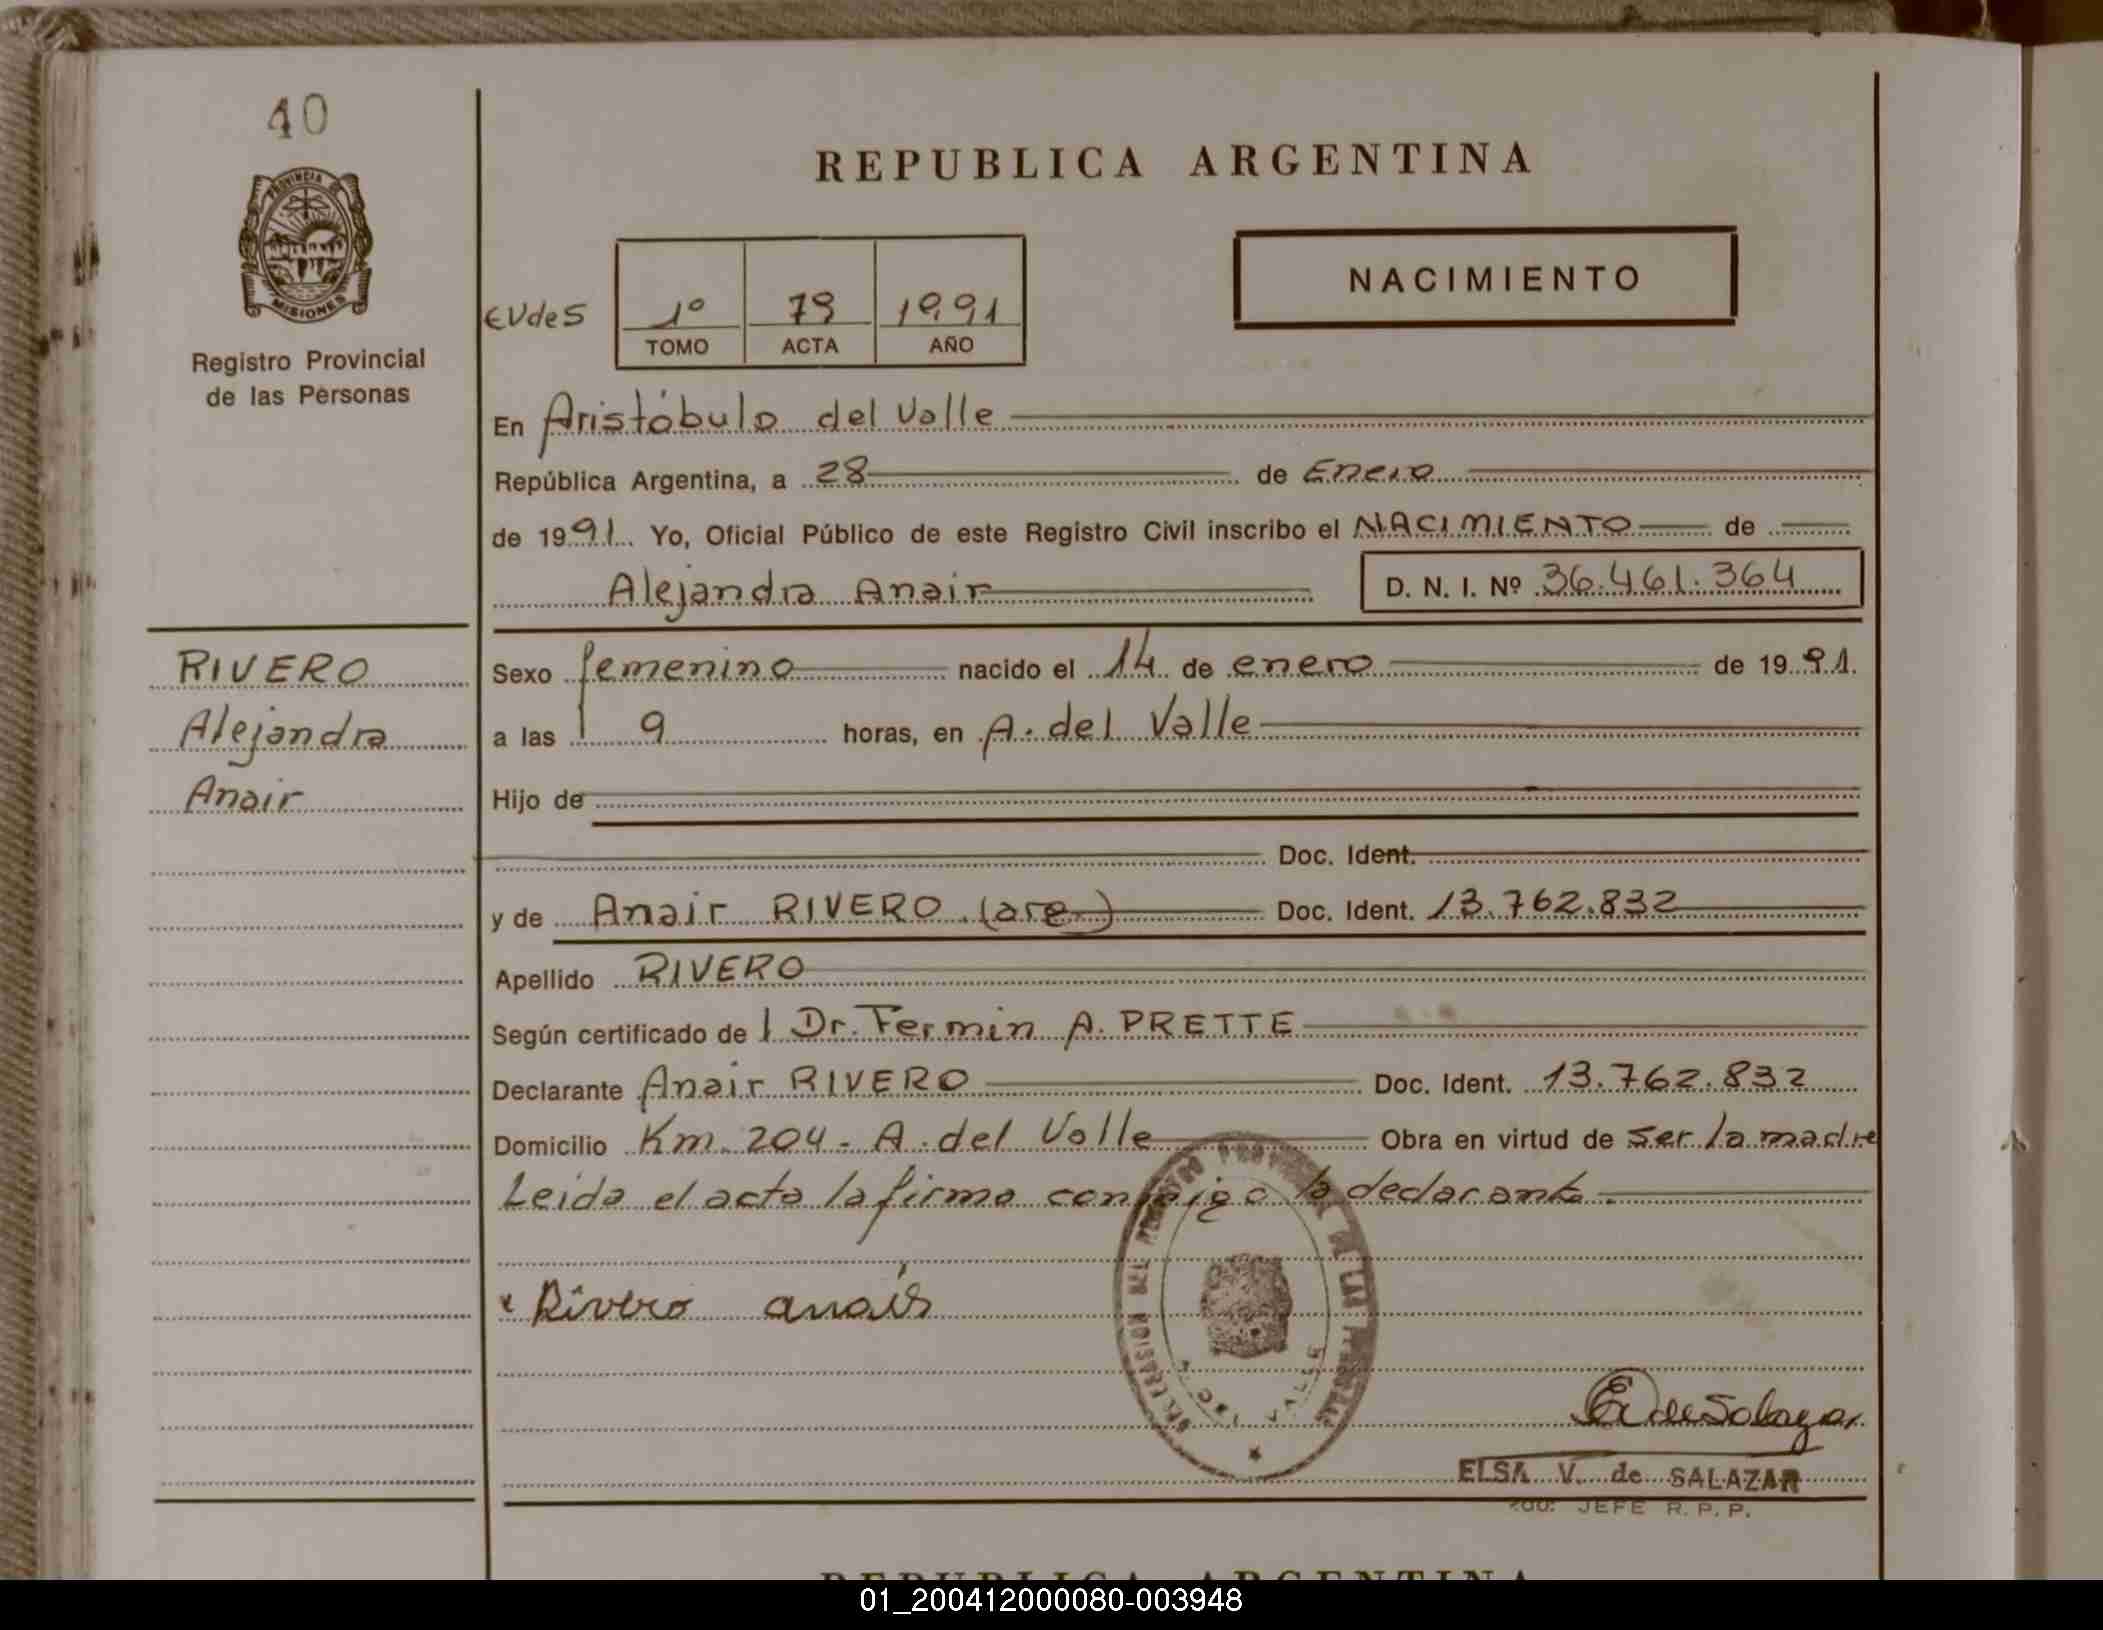 40
PROVINCIA DE
MISIONES
Registro Provincial
de las Personas
REPUBLICA ARGENTINA
NACIMIENTO
1º 79 1991
TOMO ACTA AÑO
En Aristóbulo del Valle
República Argentina, a 28 de Enero
de 1991. Yo, Oficial Público de este Registro Civil inscribo el NACIMIENTO de
Alejandra Anair D. N. I. Nº 36.461.364
RIVERO
Alejandra
Anair
Sexo femenino nacido el 14 de enero de 1991.
a las 9 horas, en A. del Valle
Hijo de
Doc. Ident.
y de Anair RIVERO (arg.) Doc. Ident. 13.762.832
Apellido RIVERO
Según certificado de l Dr. Fermin A. PRETTE
Declarante Anair RIVERO Doc. Ident. 13.762.832
Domicilio Km. 204 - A. del Valle Obra en virtud de ser la madre
Leida el acta la firma conmigo la declarante.
Rivero anair
E V de Salazar
ELSA V. de SALAZAR
JEFE R. P. P.
REPUBLICA ARGENTINA
01_200412000080-003948